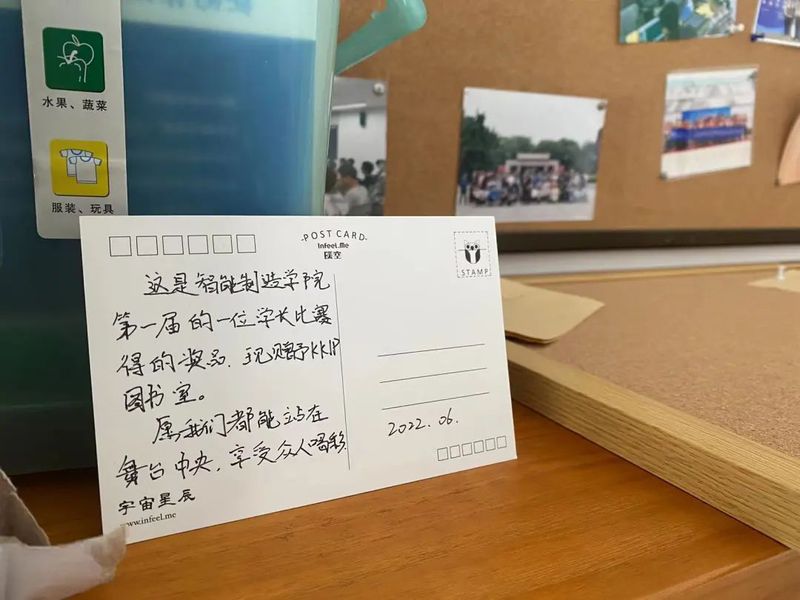 水果、蔬菜
服装、玩具
POST CARD
Infeel.Me
STAMP
这是智能制造学院
第一届的一位学长比赛
得的奖品，现赠予KKIP
图书室。
愿我们都能站在
舞台中央，享受众人喝彩
2022.06.
宇宙星辰
www.infeel.me